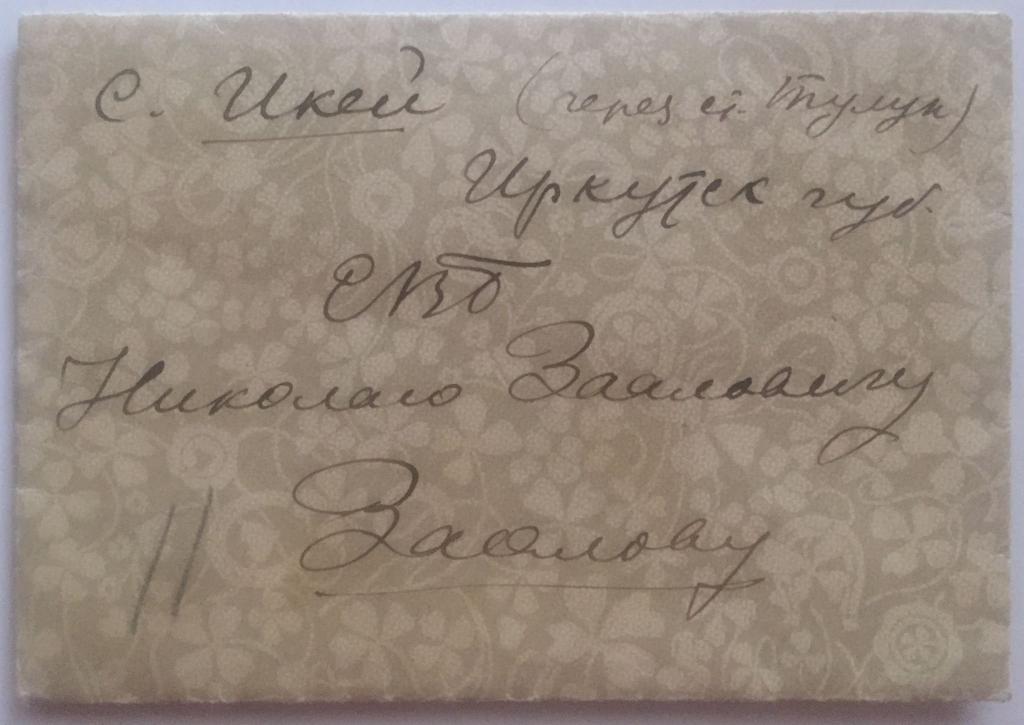 с. Икей (через ст. Тулун)
Иркутск губ.
ЕВБ
Николаю Зааловичу
Заалову